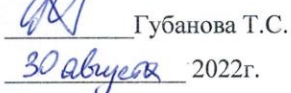 Губанова Т.С.
30 августа 2022г.